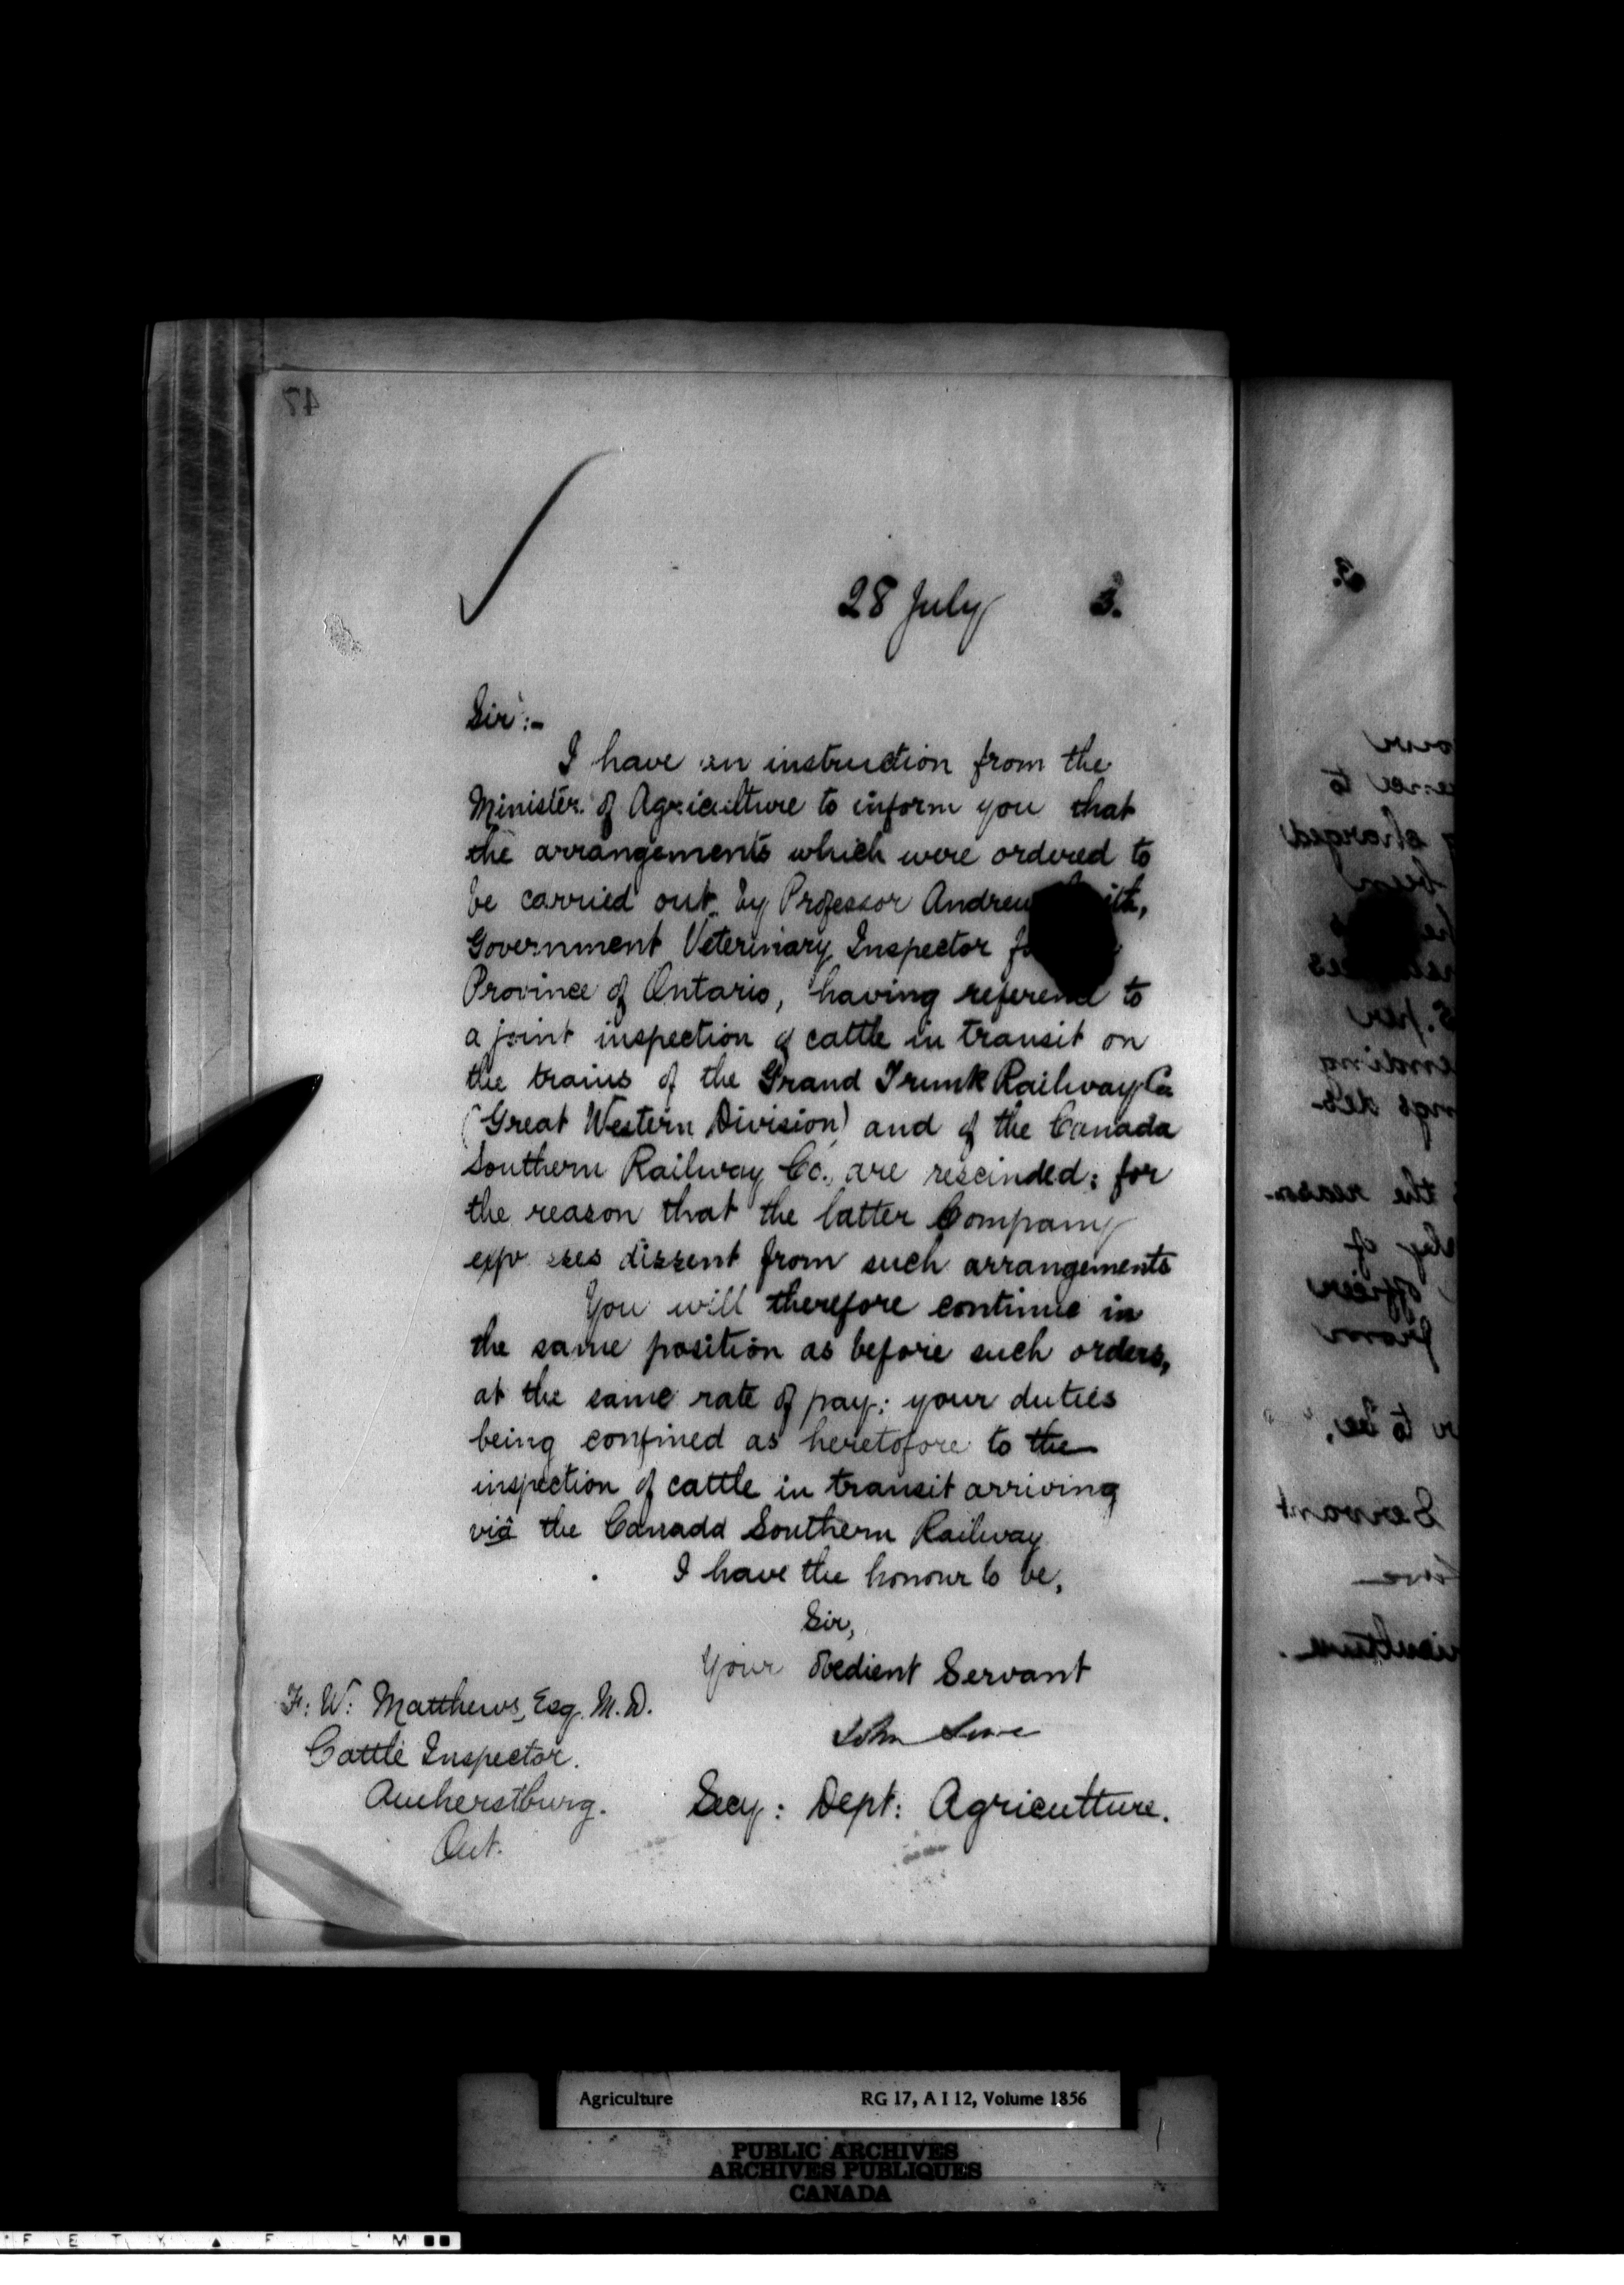 47
28 July 3.
Sir:-
I have an instruction from the
Minister of Agriculture to inform you that
the arrangements which were ordered to
be carried out by Professor Andrew
Government Veterinary Inspector
Province of Ontario, having to
a joint inspection of cattle in transit on
the trains of the Grand Trunk Railway Co
(Great Western Division) and of the Canada
Southern Railway Co., are rescinded; for
the reason that the latter Company
dissent from such arrangements
You will therefore continue in
the same position as before such orders,
at the same rate of pay: your duties
being confined as heretofore to the
inspection of cattle in transit arriving
viâ the Canada Southern Railway
I have the honour to be,
Sir,
Your Obedient Servant
John Lowe
F. W. Matthews, Esq. M.D.
Cattle Inspector.
Amherstburg.
Ont.
Secy: Dept: Agriculture.
3.
to
charged
been
per
the reason
of
officer
from
to be,
Servant
Agriculture RG 17, A I 12, Volume 1856
PUBLIC ARCHIVES
ARCHIVES PUBLIQUES
CANADA
F E T Y F I L M